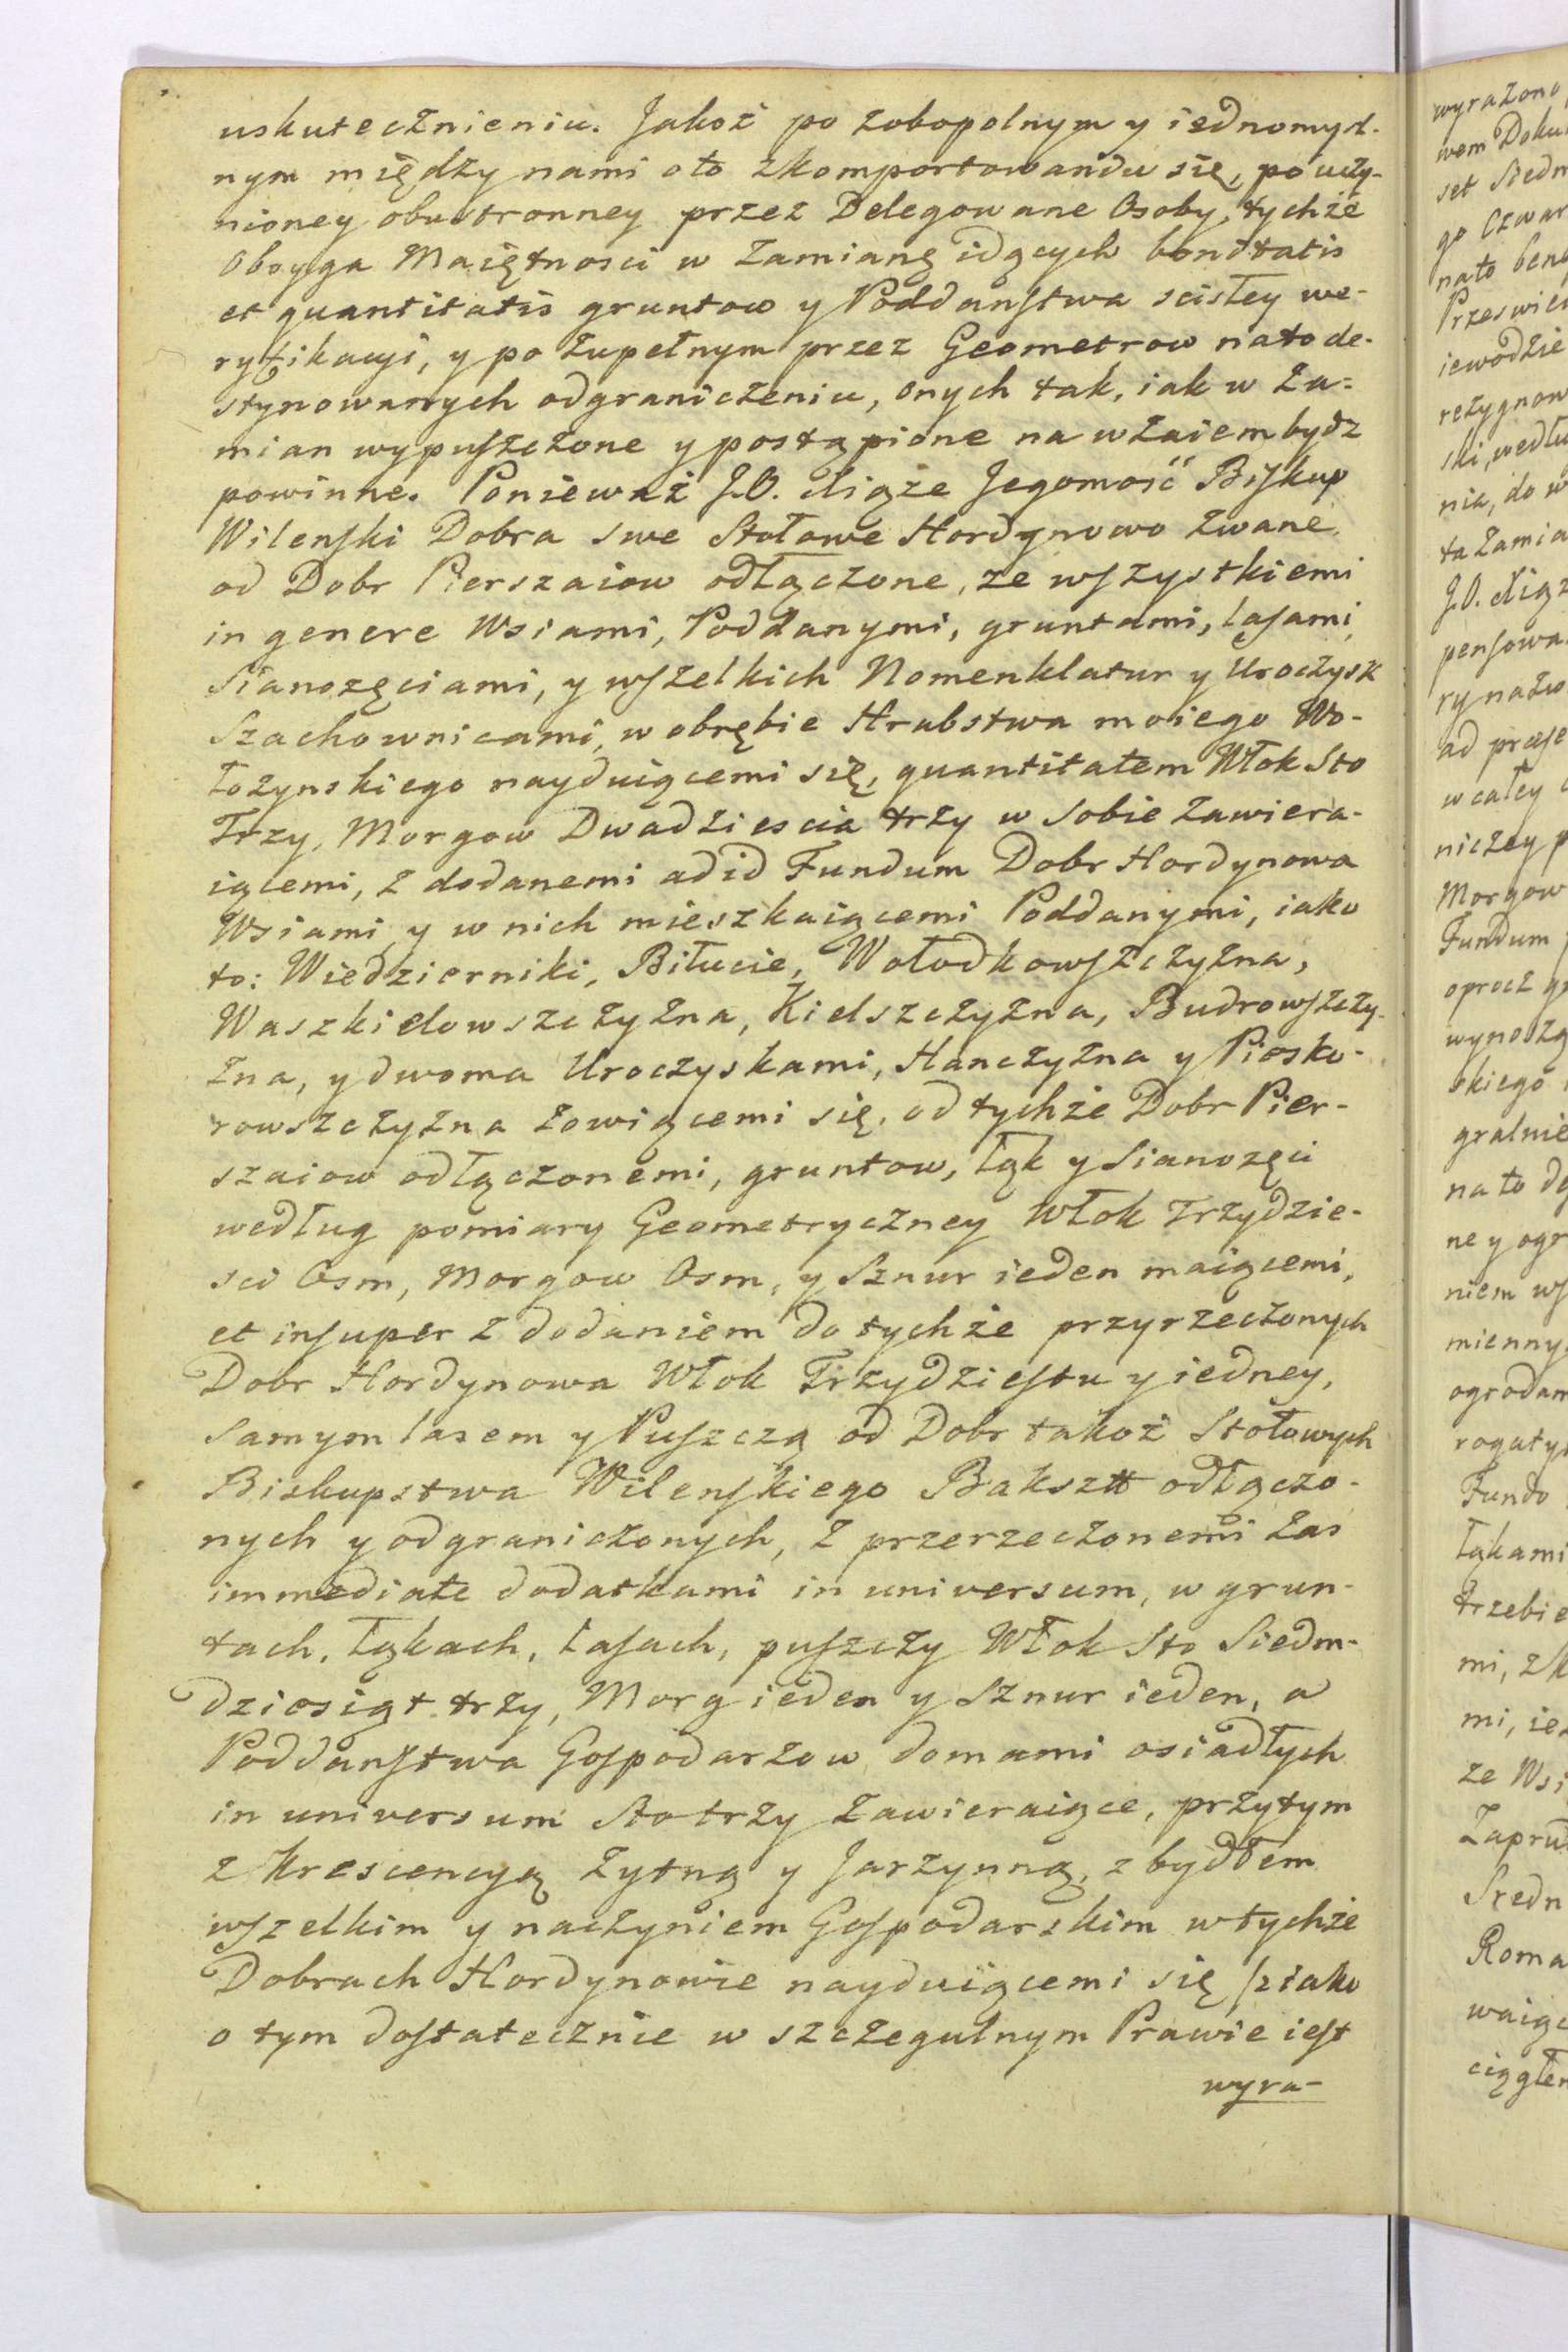 uskutecznieniu. Jakoż po zobopolnym y iednomysl-
nym między nami oto zkomportowaniu się, po uczy-
nioney obustronney przez Delegowane Osoby, tychże
oboyga Maiętnosci w Zamianę idących bonitatis
et quantitatis gruntow y Poddanstwa scisłey we-
ryfikacyi, y po zupełnym przez Geometrow nato de-
stynowanych odgraniczeniu, onych tak, iak w Za-
mian wypuszczone y postąpione nawzaiem bydz
powinne. Ponieważ J.O. Xiąże Jegomość Biskup
Wilenski Dobra swe Stołowe Hordynowo zwane,
od Dobr Pierszaiow odłączone, ze wszystkiemi
in genere Wsiami, Poddanymi, gruntami, lasami,
Sianozęciami, y wszelkich Nomenklatur y Uroczysk
Szachownicami, w obrębie Hrabstwa moiego Wo-
łożynskiego nayduiącemi się, quantitatem Włok Sto
Trzy, Morgow Dwadziescia trzy w sobie zawiera-
iącemi, z dodanemi ad id Fundum Dobr Hordynowa
Wsiami y w nich mieszkaiącemi Poddanymi, iako
to: Wiedzierniki, Biłucie, Wołodkowszczyzna,
Waszkielowszczyzna, Kielszczyzna, Budrowszczy-
zna, y dwoma Uroczyskami, Hanczyzna y Piosko-
rowszczyzna zowiącemi się, od tychże Dobr Pier-
szaiow odłączonemi, gruntow, łąk y Sianozęci
według pomiary Geometryczney Włok Trzydzie-
sci Osm, Morgow Osm, y Sznur ieden maiącemi,
et insuper z dodaniem do tychże przyrzeczonych
Dobr Hordynowa Włok Trzydziestu y iedney,
samym lasem y Puszczą od Dobr takoż Stołowych
Biskupstwa Wilenskiego Bakszt odłączo-
nych y odgraniczonych, z przerzeczonemi zas
immediate dodatkami in universum, w grun-
tach, łąkach, lasach, puszczy Włok Sto Siedm-
dziesiąt trzy, Morg ieden y Sznur ieden, a
Poddanstwa Gospodarzow domami osiadłych
in universum Sto trzy zawieraiące, przytym
z Krescencyą żytną y Jarzynną, z bydłem
wszelkim y naczyniem Gospodarskim w tychże
Dobrach Hordynowie nayduiącemi się /:iako
o tym dostatecznie w szczegulnym Prawie iest
wyra-
wyrażono
wem Doku
set Siedm
go Czwar
nato bene
Przeswie
iewodzie
rezygnow
ski, wedłu
nia, do w
ta zamia
J.O. Xiąż
pensowa
ry nazw
ad praese
w całey
niczey p
Morgow
Fundum
oprocz gr
wynoszą
skiego
gralnie
na to de
ne y ogr
niem ws
mienny
ogrodam
rogaty
Fundo
łąkami
trzebie
mi, z
mi, ie
ze Wsi
Zapru
Sredn
Roma
waiąc
ciągłe